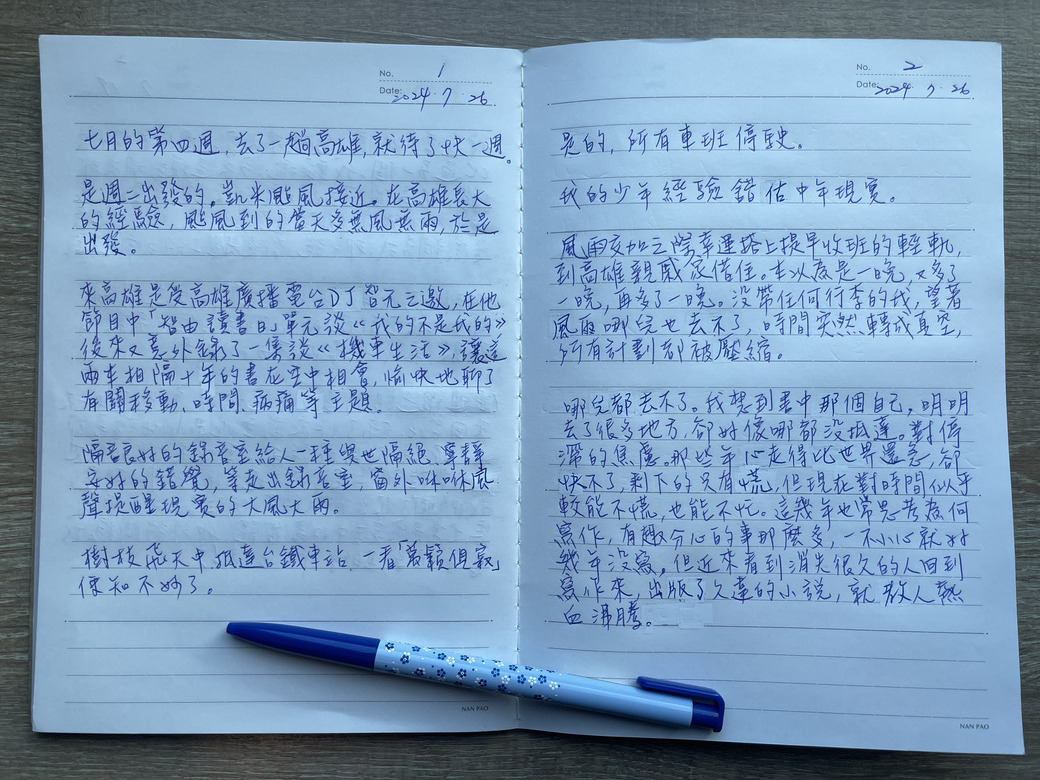 No. 1
Date: 2024 7 26
七月的第四週,去了一趟高雄,就待了快一週。
是週二出發的。凱米颱風接近。在高雄長大
的經驗,颱風到的當天多無風無雨,於是
出發。
來高雄是受高雄廣播電台DJ智元之邀,在他
節目中「智由讀書日」單元談《我的不是我的》
後來又意外錄了一集談《機車生活》,讓這
兩本相隔十年的書在空中相會,愉快地聊了
有關移動、時間、病痛等主題。
隔音良好的錄音室給人一種與世隔絕、寧靜
安好的錯覺,等走出錄音室,窗外咻咻風
聲提醒現實的大風大雨。
樹枝飛天中,抵達台鐵車站,一看「萬籟俱寂」
便知不妙了。
NAN PAO
No. 2
Date: 2024 7 26
是的,所有車班停駛。
我的少年經驗錯估中年現實。
風雨交加之際幸運搭上提早收班的輕軌,
到高雄親戚家借住。本以為是一晚,又多了
一晚,再多了一晚。沒帶任何行李的我,望著
風雨哪兒也去不了,時間突然轉成真空,
所有計劃都被壓縮。
哪兒都去不了。我想到書中那個自己,明明
去了很多地方,卻好像哪都沒抵達。對停
滯的焦慮。那些年心走得比世界還急,卻
快不了,剩下的只有慌,但現在對時間似乎
較能不慌,也能不忙。這幾年也常思考為何
寫作,有趣分心的事那麼多,一不小心就好
幾年沒寫,但近來看到消失很久的人回到
寫作來,出版了久違的小說,就教人熱
血沸騰。
NAN PAO